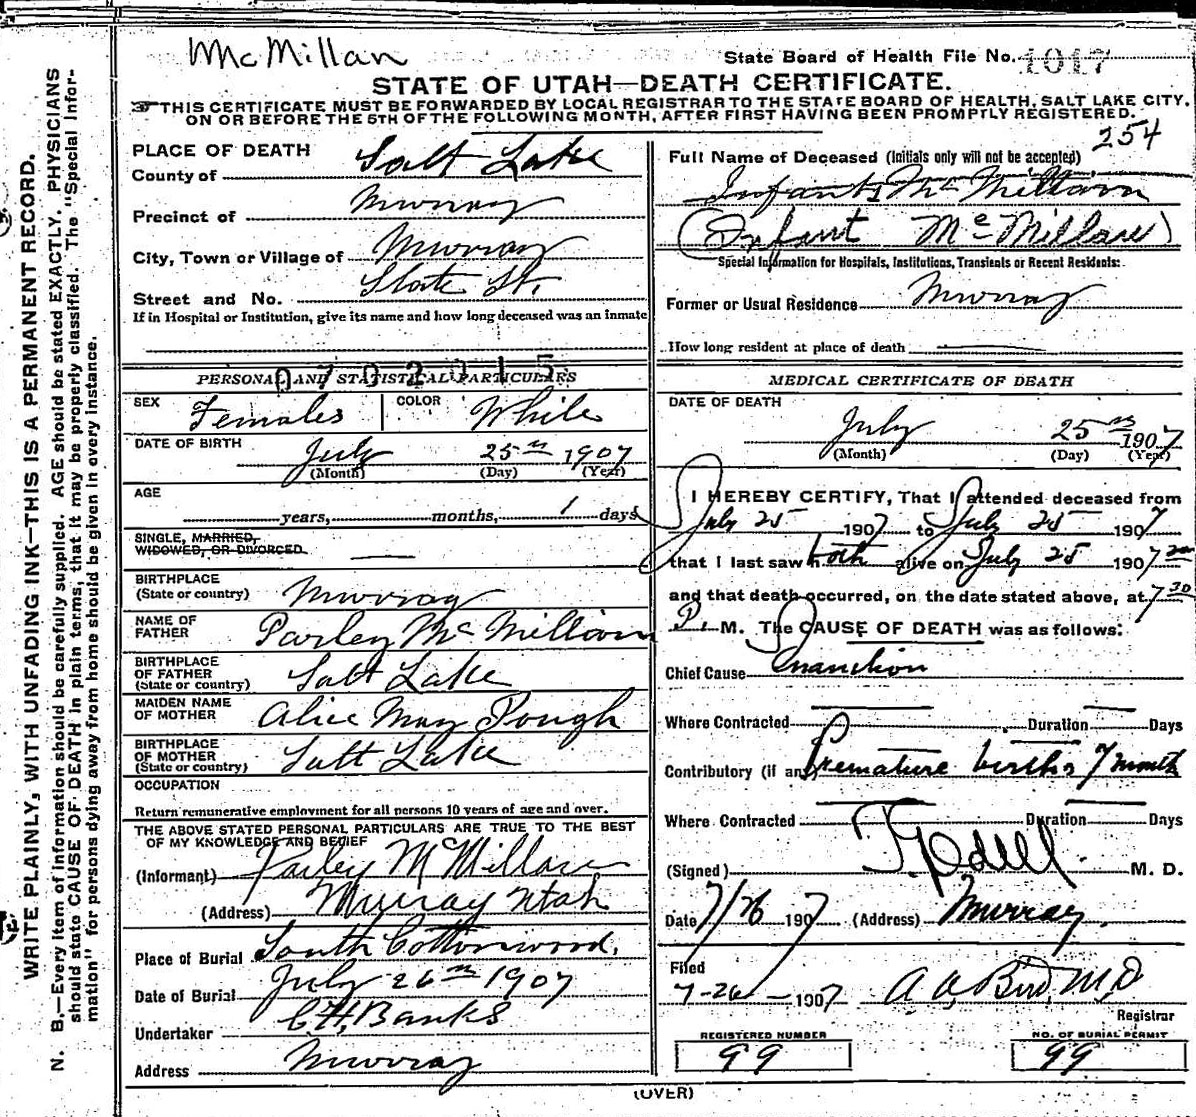 McMillan
State Board of Health File No. 1017
STATE OF UTAH—DEATH CERTIFICATE.
THIS CERTIFICATE MUST BE FORWARDED BY LOCAL REGISTRAR TO THE STATE BOARD OF HEALTH, SALT LAKE CITY,
ON OR BEFORE THE 5TH OF THE FOLLOWING MONTH, AFTER FIRST HAVING BEEN PROMPTLY REGISTERED.
WRITE PLAINLY, WITH UNFADING INK—THIS IS A PERMANENT RECORD.
N. B.—Every item of information should be carefully supplied. AGE should be stated EXACTLY. PHYSICIANS
should state CAUSE OF DEATH in plain terms, that it may be properly classified. The "Special Infor-
mation" for persons dying away from home should be given in every instance.
PLACE OF DEATH
County of Salt Lake
Precinct of Murray
City, Town or Village of Murray
Street and No. State St.
If in Hospital or Institution, give its name and how long deceased was an inmate
0702015
PERSONAL AND STATISTICAL PARTICULARS
SEX Females COLOR White
DATE OF BIRTH July 25th 1907
(Month) (Day) (Year)
AGE
years, months, 1 days
SINGLE, MARRIED,
WIDOWED, OR DIVORCED
BIRTHPLACE
(State or country) Murray
NAME OF
FATHER Parley McMillan
BIRTHPLACE
OF FATHER
(State or country) Salt Lake
MAIDEN NAME
OF MOTHER Alice May Pough
BIRTHPLACE
OF MOTHER
(State or country) Salt Lake
OCCUPATION
Return remunerative employment for all persons 10 years of age and over.
THE ABOVE STATED PERSONAL PARTICULARS ARE TRUE TO THE BEST
OF MY KNOWLEDGE AND BELIEF
(Informant) Parley McMillan
(Address) Murray Utah
Place of Burial South Cottonwood,
Date of Burial July 26th 1907
Undertaker C.H. Banks
Address Murray
254
Full Name of Deceased (Initials only will not be accepted)
Infants McMillan
(Infant McMillan)
Special Information for Hospitals, Institutions, Transients or Recent Residents:
Former or Usual Residence Murray
How long resident at place of death
MEDICAL CERTIFICATE OF DEATH
DATE OF DEATH
July 25th 1907
(Month) (Day) (Year)
I HEREBY CERTIFY, That I attended deceased from
July 25 1907 to July 25 1907
that I last saw h both alive on July 25 1907
and that death occurred, on the date stated above, at 7 30
P. M. The CAUSE OF DEATH was as follows:
Chief Cause Inanition
Where Contracted Duration Days
Contributory (if any) Premature births 7 month
Where Contracted Duration Days
(Signed) M. D.
Date 7/26 1907 (Address) Murray.
Filed
7-26-1907 A. A. Bird, M.D
Registrar
REGISTERED NUMBER
99
NO. OF BURIAL PERMIT
99
(OVER)